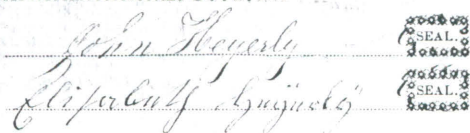 John Heyerly SEAL.
Elisabeth Heÿerlÿ SEAL.